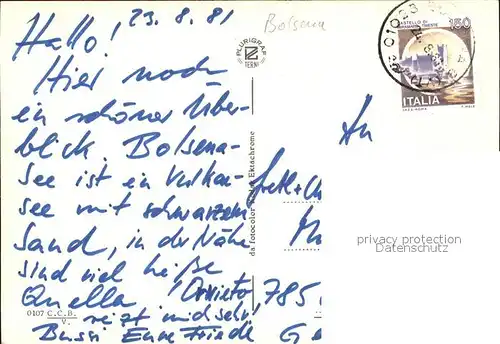 23.8.81
Hallo!
Hier noch
ein schöner Über-
blick. Bolsena-
See ist ein Vulkan-
see mit schwarzem
Sand, in der Nähe
sind viel heiße
Quellen! Orvieto
reizt mich sehr!
Bussi Eure Friedl
Bolsena
PLURIGRAF
TERNI
da fotocolor Kodak Ektachrome
0107 C.C.B.
V.
CASTELLO DI
150
ITALIA
01023
An
785
privacy protection
Datenschutz